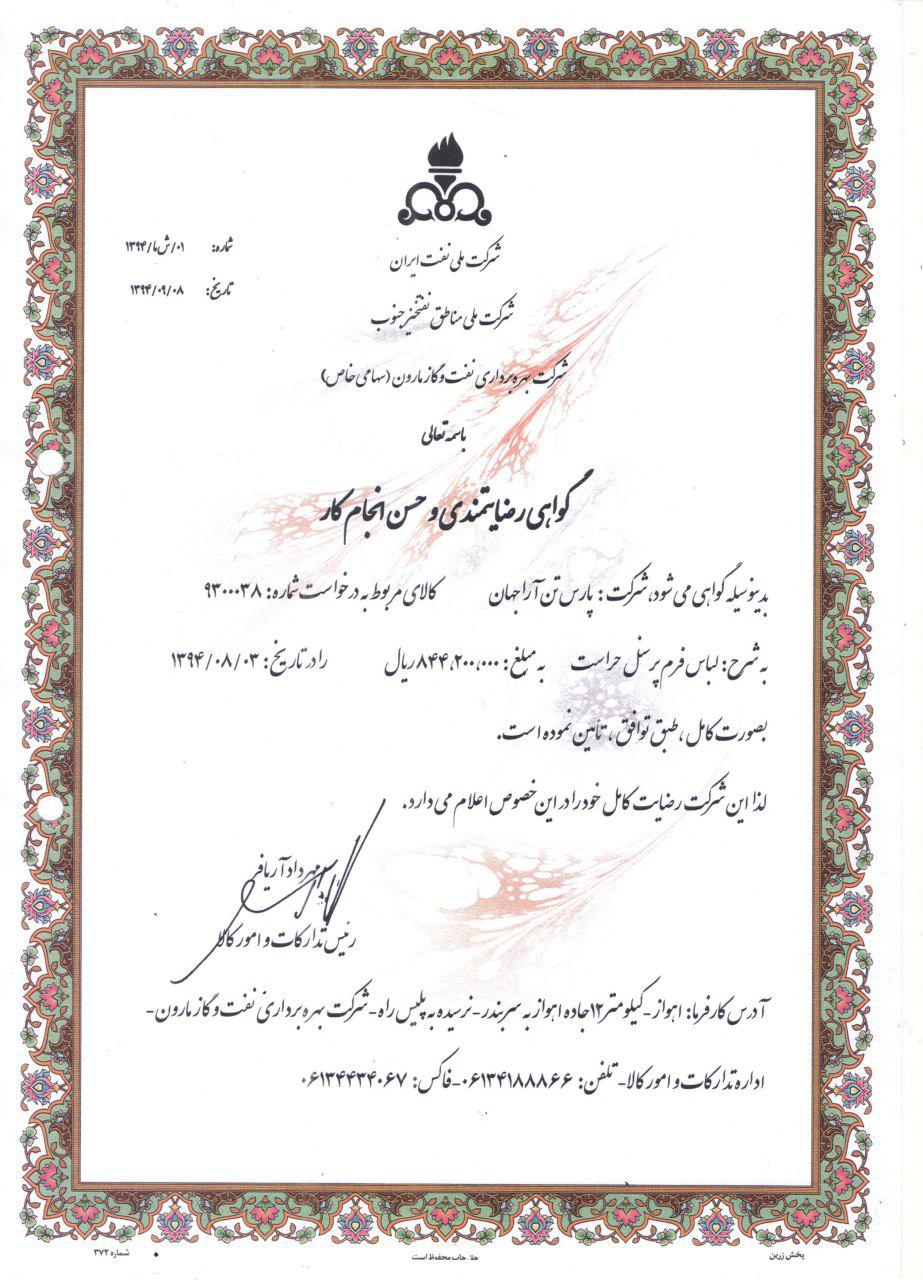 شماره: ۰۱/ش ما/۱۳۹۴
تاریخ: ۱۳۹۴/۰۹/۰۸
شرکت ملی نفت ایران
شرکت ملی مناطق نفتخیز جنوب
شرکت بهره برداری نفت و گاز مارون (سهامی خاص)
باسمه تعالی
گواهی رضایتمندی و حسن انجام کار
بدینوسیله گواهی می شود، شرکت: پارس تن آرا جهان کالای مربوط به درخواست شماره: ۹۳۰۰۰۳۸
به شرح: لباس فرم پرسنل حراست به مبلغ: ۸۴۴،۲۰۰،۰۰۰ ریال را در تاریخ: ۱۳۹۴/۰۸/۰۳
بصورت کامل، طبق توافق، تأمین نموده است.
لذا این شرکت رضایت کامل خود را در این خصوص اعلام می دارد.
مهرداد آریافر
رئیس تدارکات و امور کالا
آدرس کارفرما: اهواز - کیلومتر ۱۲ جاده اهواز به سربندر - نرسیده به پلیس راه - شرکت بهره برداری نفت و گاز مارون -
اداره تدارکات و امور کالا - تلفن: ۰۶۱۳۴۱۸۸۸۶۶ - فاکس: ۰۶۱۳۴۴۳۴۰۶۷
پخش زرین
حق چاپ محفوظ است
شماره ۳۷۲